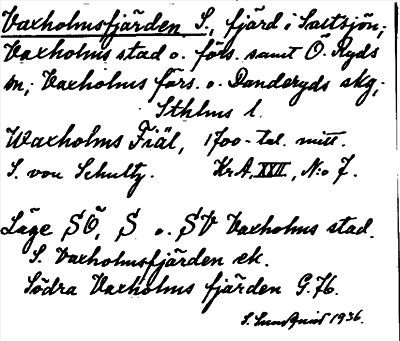 Vaxholmsfjärden S., fjärd i Saltsjön;
Vaxholms stad o. förs. samt Ö. Ryds
sn; Vaxholms förs. o. Danderyds skg,
Sthlms l.
Waxholms Fiäl, 1700-tal. mitt.
S. von Schultz. KrA, XVII, N:o 7.
Läge SÖ, S o. SV Vaxholms stad.
S. Vaxholmsfjärden ek.
Södra Vaxholms fjärden G.76.
S. Lundquist 1936.